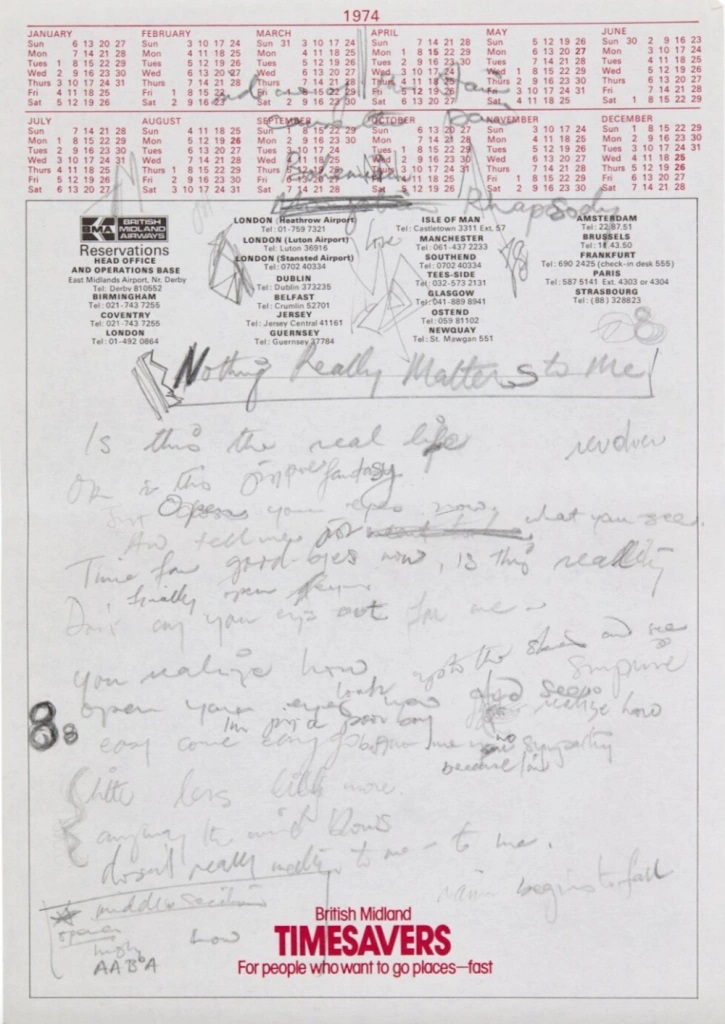 1974
JANUARY
Sun 6 13 20 27
Mon 7 14 21 28
Tues 1 8 15 22 29
Wed 2 9 16 23 30
Thurs 3 10 17 24 31
Fri 4 11 18 25
Sat 5 12 19 26
FEBRUARY
Sun 3 10 17 24
Mon 4 11 18 25
Tues 5 12 19 26
Wed 6 13 20 27
Thurs 7 14 21 28
Fri 1 8 15 22
Sat 2 9 16 23
MARCH
Sun 31 3 10 17 24
Mon 4 11 18 25
Tues 5 12 19 26
Wed 6 13 20 27
Thurs 7 14 21 28
Fri 1 8 15 22 29
Sat 2 9 16 23 30
APRIL
Sun 7 14 21 28
Mon 1 8 15 22 29
Tues 2 9 16 23 30
Wed 3 10 17 24
Thurs 4 11 18 25
Fri 5 12 19 26
Sat 6 13 20 27
MAY
Sun 5 12 19 26
Mon 6 13 20 27
Tues 7 14 21 28
Wed 1 8 15 22 29
Thurs 2 9 16 23 30
Fri 3 10 17 24 31
Sat 4 11 18 25
JUNE
Sun 30 2 9 16 23
Mon 3 10 17 24
Tues 4 11 18 25
Wed 5 12 19 26
Thurs 6 13 20 27
Fri 7 14 21 28
Sat 1 8 15 22 29
JULY
Sun 7 14 21 28
Mon 1 8 15 22 29
Tues 2 9 16 23 30
Wed 3 10 17 24 31
Thurs 4 11 18 25
Fri 5 12 19 26
Sat 6 13 20 27
AUGUST
Sun 4 11 18 25
Mon 5 12 19 26
Tues 6 13 20 27
Wed 7 14 21 28
Thurs 1 8 15 22 29
Fri 2 9 16 23 30
Sat 3 10 17 24 31
SEPTEMBER
Sun 1 8 15 22 29
Mon 2 9 16 23 30
Tues 3 10 17 24
Wed 4 11 18 25
Thurs 5 12 19 26
Fri 6 13 20 27
Sat 7 14 21 28
OCTOBER
Sun 6 13 20 27
Mon 7 14 21 28
Tues 1 8 15 22 29
Wed 2 9 16 23 30
Thurs 3 10 17 24 31
Fri 4 11 18 25
Sat 5 12 19 26
NOVEMBER
Sun 3 10 17 24
Mon 4 11 18 25
Tues 5 12 19 26
Wed 6 13 20 27
Thurs 7 14 21 28
Fri 1 8 15 22 29
Sat 2 9 16 23 30
DECEMBER
Sun 1 8 15 22 29
Mon 2 9 16 23 30
Tues 3 10 17 24 31
Wed 4 11 18 25
Thurs 5 12 19 26
Fri 6 13 20 27
Sat 7 14 21 28
Bohemian
Rhapsody
BMA BRITISH MIDLAND AIRWAYS
Reservations
HEAD OFFICE
AND OPERATIONS BASE
East Midlands Airport, Nr. Derby
Tel: Derby 810552
BIRMINGHAM
Tel: 021-743 7255
COVENTRY
Tel: 021-743 7255
LONDON
Tel: 01-492 0864
LONDON (Heathrow Airport)
Tel: 01-759 7321
LONDON (Luton Airport)
Tel: Luton 36916
LONDON (Stansted Airport)
Tel: 0702 40334
DUBLIN
Tel: Dublin 373235
BELFAST
Tel: Crumlin 52701
JERSEY
Tel: Jersey Central 41161
GUERNSEY
Tel: Guernsey 37784
ISLE OF MAN
Tel: Castletown 3311 Ext. 57
MANCHESTER
Tel: 061-437 2233
SOUTHEND
Tel: 0702 40334
TEES-SIDE
Tel: 032-573 2131
GLASGOW
Tel: 041-889 8941
OSTEND
Tel: 059 81102
NEWQUAY
Tel: St. Mawgan 551
AMSTERDAM
Tel: 22.87.51
BRUSSELS
Tel: 18.43.50
FRANKFURT
Tel: 690 2425 (check-in desk 555)
PARIS
Tel: 587 5141 Ext. 4303 or 4304
STRASBOURG
Tel: (88) 328823
Nothing Really Matters to Me
Is this the real life
or is this just fantasy
Open your eyes now, what you see.
And tell me
Time for good-byes now, is this reality
finally open
Don't cry your eyes out for me
you realize how
look up to the skies and see
surprise
open your eyes now
realize how
I'm just a poor boy
easy come easy go no sympathy
because I'm
little less little more.
anyway the wind blows
doesn't really matter to me - to me.
begins to fall
middle section
opera
high low
AABA
British Midland
TIMESAVERS
For people who want to go places—fast